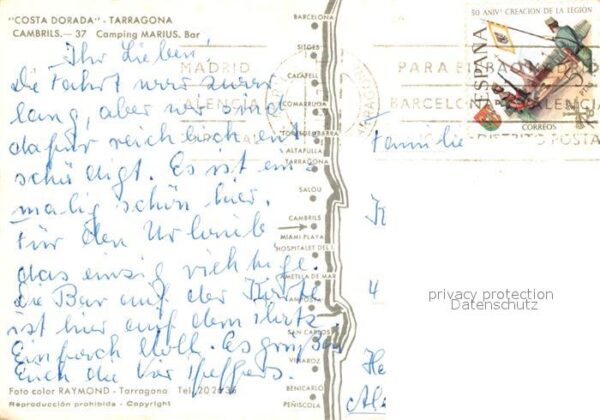 "COSTA DORADA" - TARRAGONA
CAMBRILS.— 37 Camping MARIUS. Bar
Ihr Lieben!
Die Fahrt war zwar
lang, aber wir sind
dafür reichlich ent-
schädigt. Es ist ein-
malig schön hier.
Für den Urlaub
das einzig richtige.
Die Bar auf der Karte
ist hier auf dem Platz
Einfach toll. Es grüßen
Euch die
Foto color RAYMOND - Tarragona Tel. 20 26 36
Reproducción prohibida - Copyright
BARCELONA
SITGES
CALAFELL
COMARRUGA
TORREDEMBARRA
ALTAFULLA
TARRAGONA
SALOU
CAMBRILS
MIAMI PLAYA
HOSPITALET DEL I.
AMETLLA DE MAR
AMPOSTA
SAN CARLOS
VINAROZ
BENICARLÓ
PEÑISCOLA
MADRID
VALENCIA
PARA BILBAO MADRID
BARCELONA VALENCIA
DISTRITO POSTAL
50 ANIVº CREACION DE LA LEGION
ESPAÑA
CORREOS
Familie
4
privacy protection
Datenschutz